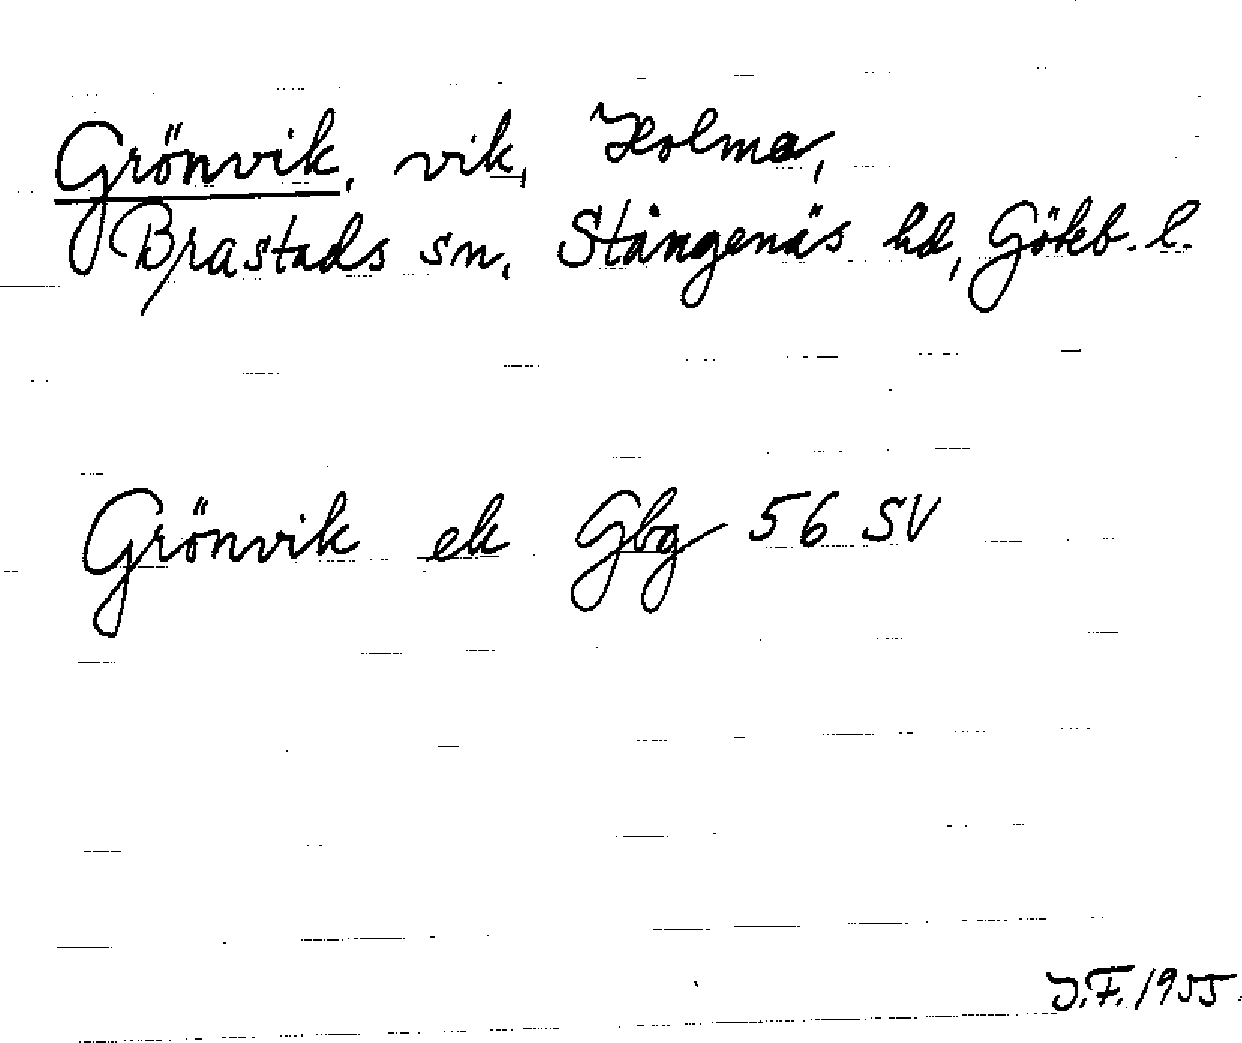 Grönvik, vik, Holma,
Brastads sn, Stångenäs hd, Göteb. l.
Grönvik ek Gbg 56 SV
J.F. 1955.